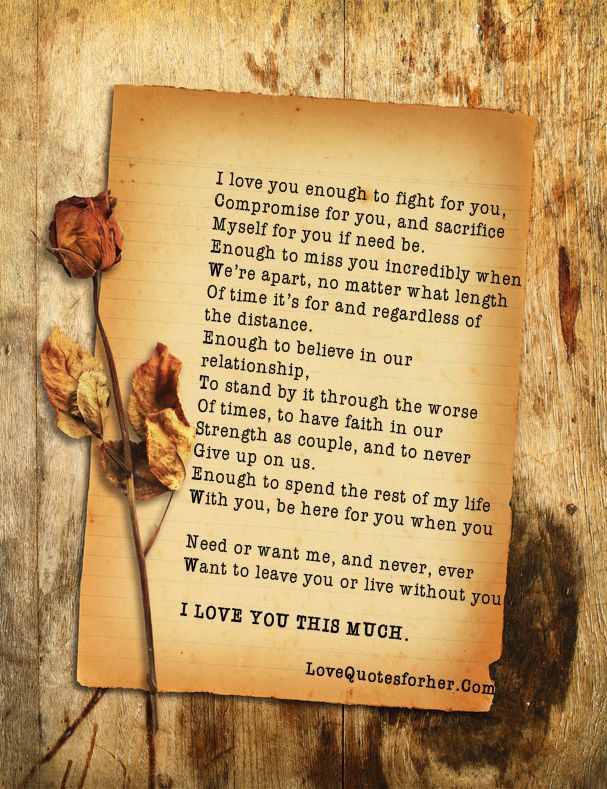 I love you enough to fight for you,
Compromise for you, and sacrifice
Myself for you if need be.
Enough to miss you incredibly when
We're apart, no matter what length
Of time it's for and regardless of
the distance.
Enough to believe in our
relationship,
To stand by it through the worse
Of times, to have faith in our
Strength as couple, and to never
Give up on us.
Enough to spend the rest of my life
With you, be here for you when you
Need or want me, and never, ever
Want to leave you or live without you
I LOVE YOU THIS MUCH.
LoveQuotesforher.Com